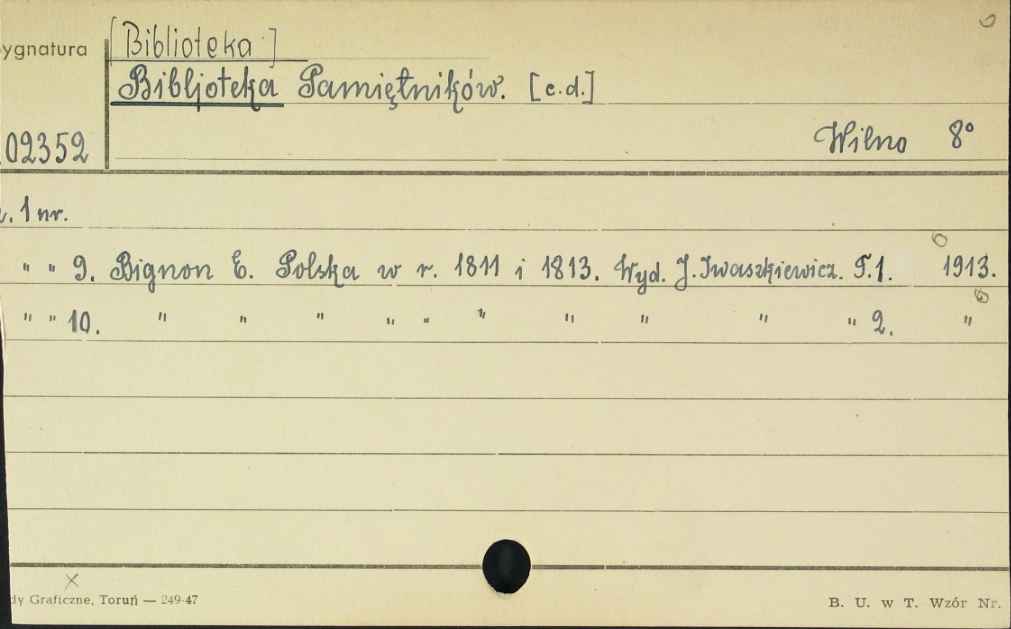 [Biblioteka]
ygnatura
Bibljoteka Pamiętników. [c.d.]
02352
Wilno 8°
1 nr.
" " 9. Bignon E. Polska w r. 1811 i 1813. Wyd. J. Iwaszkiewicz. T.1. 1913.
" " 10. " " " " " " " " " " 2. "
dy Graficzne, Toruń — 249-47
B. U. w T. Wzór Nr.